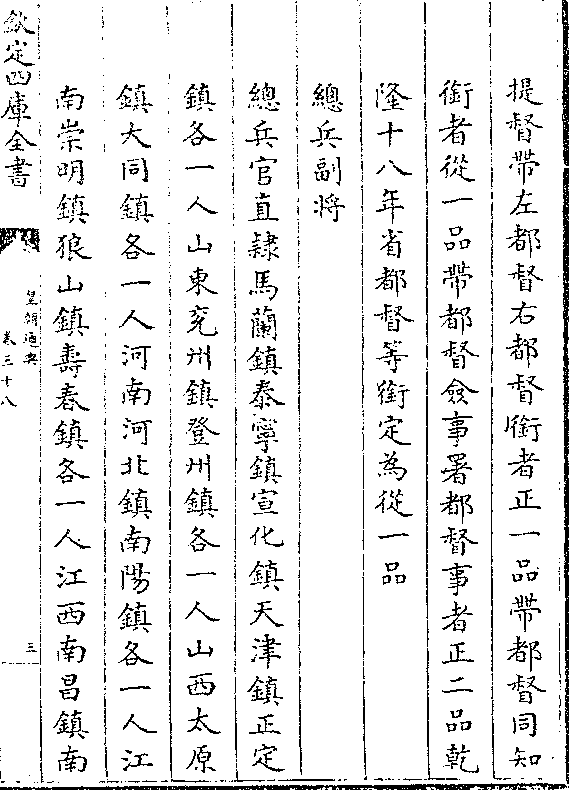 提督帶左都督右都督銜者正一品帶都督同知
銜者從一品帶都督僉事署都督事者正二品乾
隆十八年省都督等銜定為從一品
總兵副將
總兵官直隸馬蘭鎮泰寧鎮宣化鎮天津鎮正定
鎮各一人山東兖州鎮登州鎮各一人山西太原
鎮大同鎮各一人河南河北鎮南陽鎮各一人江
南崇明鎮狼山鎮壽春鎮各一人江西南昌鎮南
欽定四庫全書
皇朝通典
卷三十八
三